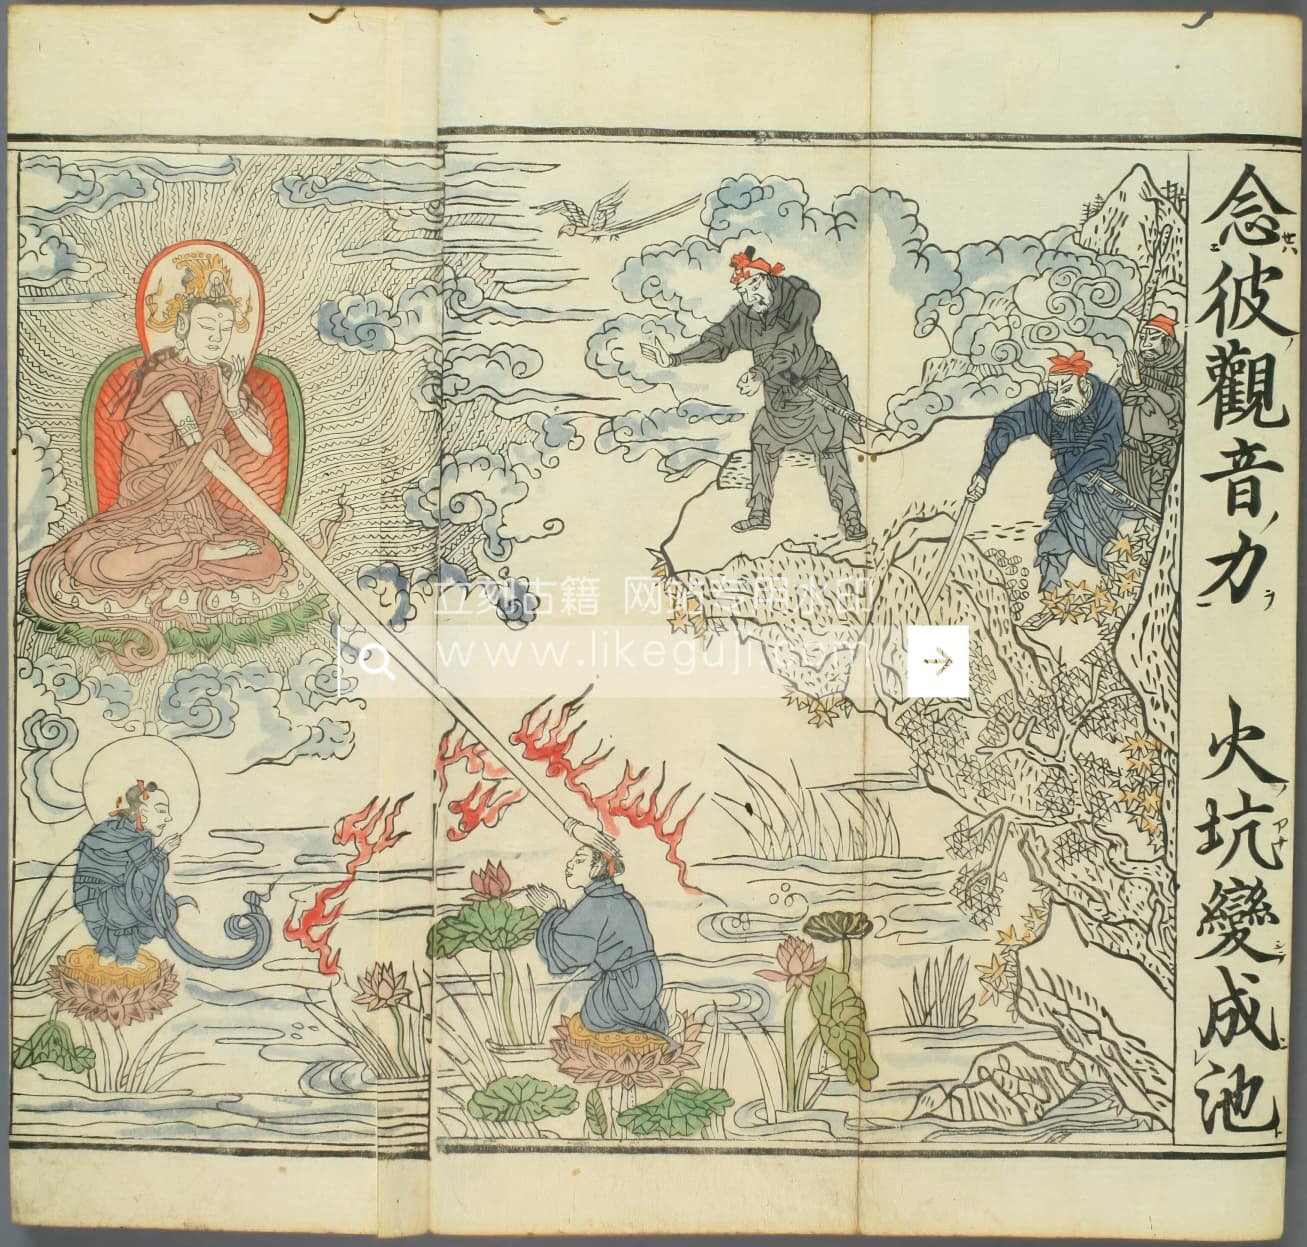 念彼觀音力 火坑變成池
廿八
立刻古籍 网站专用水印
www.likeguji.com